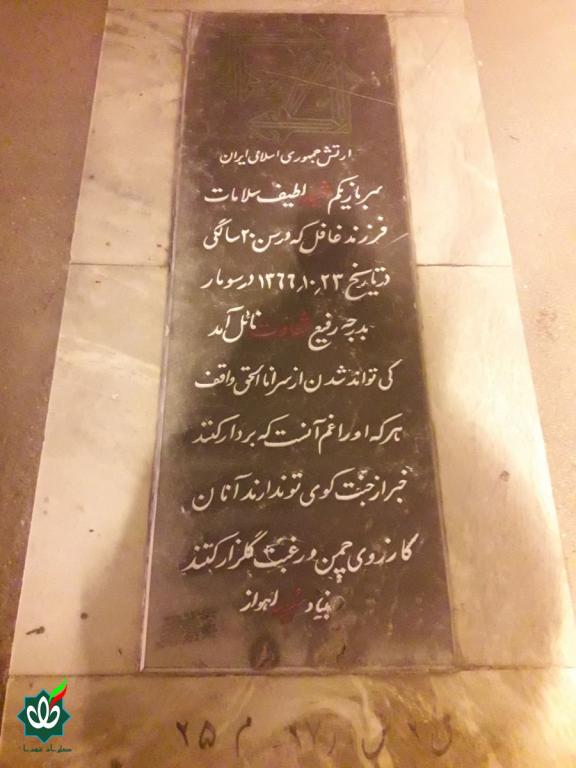 ارتش جمهوری اسلامی ایران
سرباز یکم شهید لطیف سلامات
فرزند غافل که در سن ۲۰ سالگی
در تاریخ ۲۳٫۱۰٫۱۳۶۶ در سومار
بدرجه رفیع شهادت نائل آمد
کی تواند شدن از سر انا الحق واقف
هر که او را غم آنست که بر دار کنند
خبر از جنت کوی تو ندارند آنان
کارزوی چمن و رغبت گلزار کنند
بنیاد شهید اهواز
ق ۲ ر ۲۷ م ۲۵